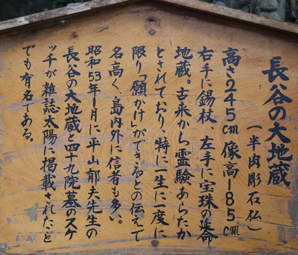 長谷の大地蔵
(一半肉彫石仏)
高さ245cm像高185cm
右手に錫杖 左手に宝珠の延命
地蔵。古来から霊験あらたか
とされており、特に一生に一度に
限り「願かけ」ができるとの伝えで
名高く、島内外に信者も多い。
昭和53年1月に平山郁夫先生の
長谷の大地蔵と四十九院墓のスケ
ッチが雑誌太陽に掲載されたこと
でも有名である。